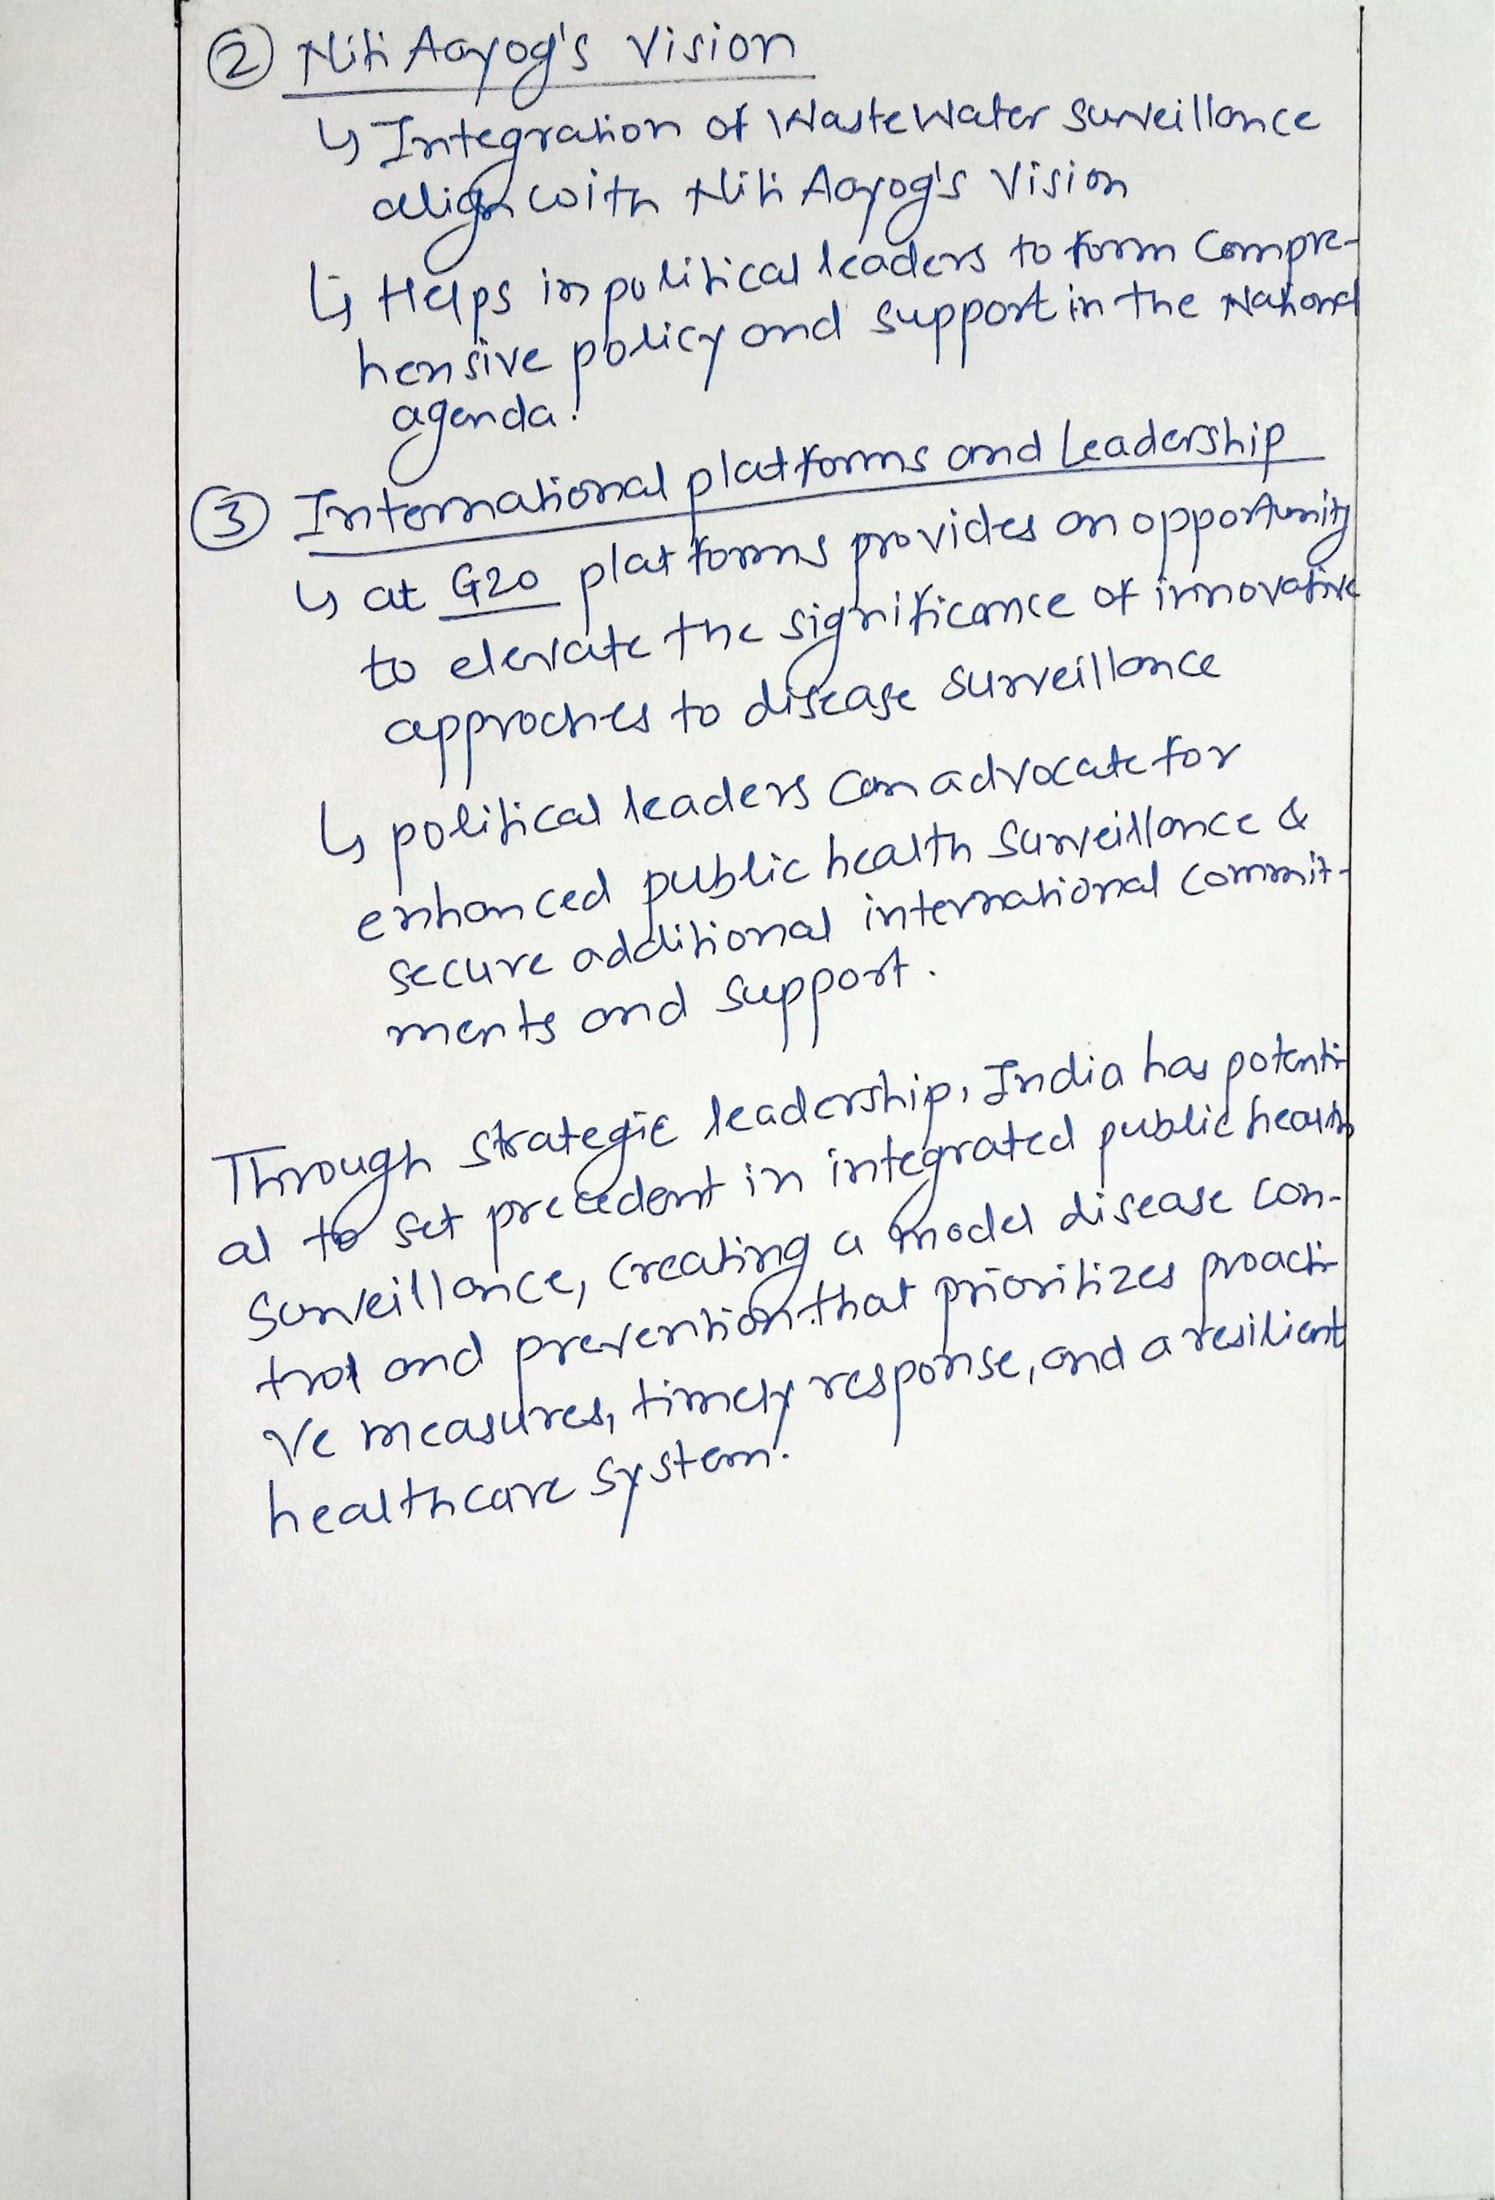 ② Niti Aayog's Vision
↳ Integration of WasteWater Surveillance
align with Niti Aayog's Vision
↳ Helps in political leaders to form Compre-
hensive policy and support in the National
agenda.
③ International platforms and Leadership
↳ at G20 platforms provides an opportunity
to elevate the significance of innovative
approches to disease surveillance
↳ political leaders can advocate for
enhanced public health Surveillance &
secure additional international commit-
ments and support.
Through strategic leadership, India has potenti
al to set precedent in integrated public health
Surveillance, creating a model disease con-
trol and prevention that prioritizes proacti-
ve measures, timely response, and a resilient
healthcare system.